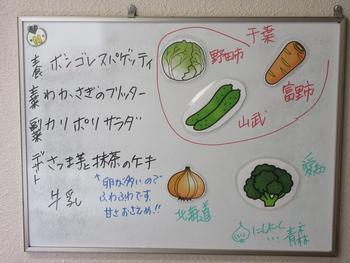 千葉
野田市
富里市
山武
主食 ボンゴレスパゲッティ
主菜 わかさぎのフリッター
副菜 カリポリサラダ
デザート さつま芋と抹茶のケーキ
*卵が多いので
ふわふわです。
甘さおさえめ!!
牛乳
愛知
北海道
にんにく
...青森